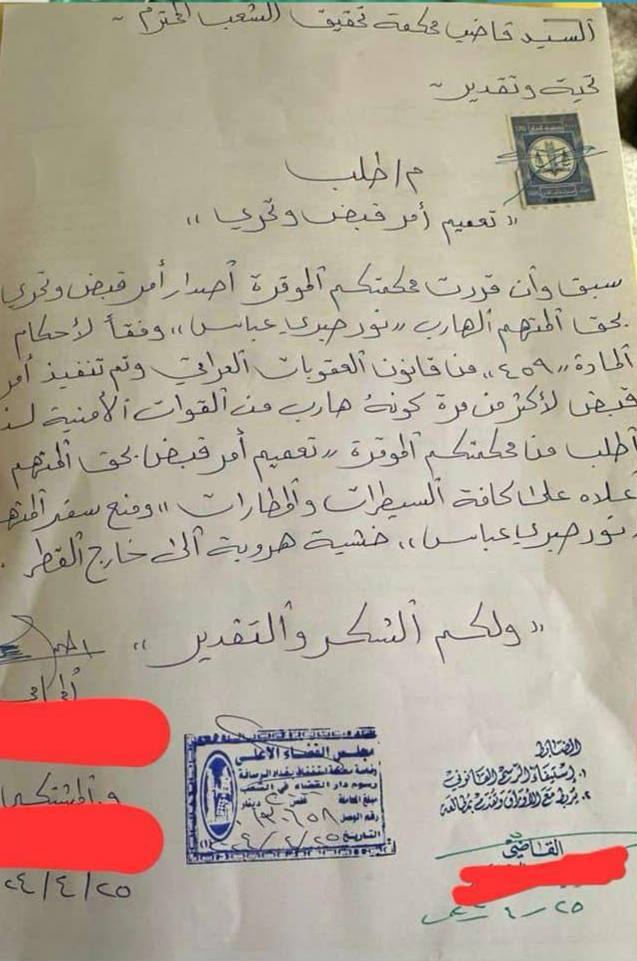 السيد قاضي محكمة تحقيق الشعب المحترم
تحية وتقدير
م/ طلب
" تعميم أمر قبض وتحري "
سبق وأن قررت محكمتكم الموقرة أصدار أمر قبض وتحري
بحق المتهم الهارب " نور صبري عباس " وفقاً لأحكام
المادة " ٤٥٩ " من قانون العقوبات العراقي وتم تنفيذ أمر
قبض لأكثر من مرة كونه هارب من القوات الأمنية لذ
أطلب من محكمتكم الموقرة " تعميم أمر قبض بحق المتهم
علاه على كافة السيطرات والمطارات " ومنع سفر المته
نور صبري عباس " خشية هروبة ألى خارج القطر .
" ولكم الشكر والتقدير "
المحامي
والمشتكي
٢٤/٤/٢٥
مجلس القضاء الأعلى
رئاسة محكمة استئناف بغداد الرصافة
رسوم دار القضاء في الشعب
مبلغ المعاملة
دينار
رقم الوصل
التاريخ
١. إستيفاء الرسم القانوني
٢. يربط مع الأوراق وتقدم بمطالعة
القاضي